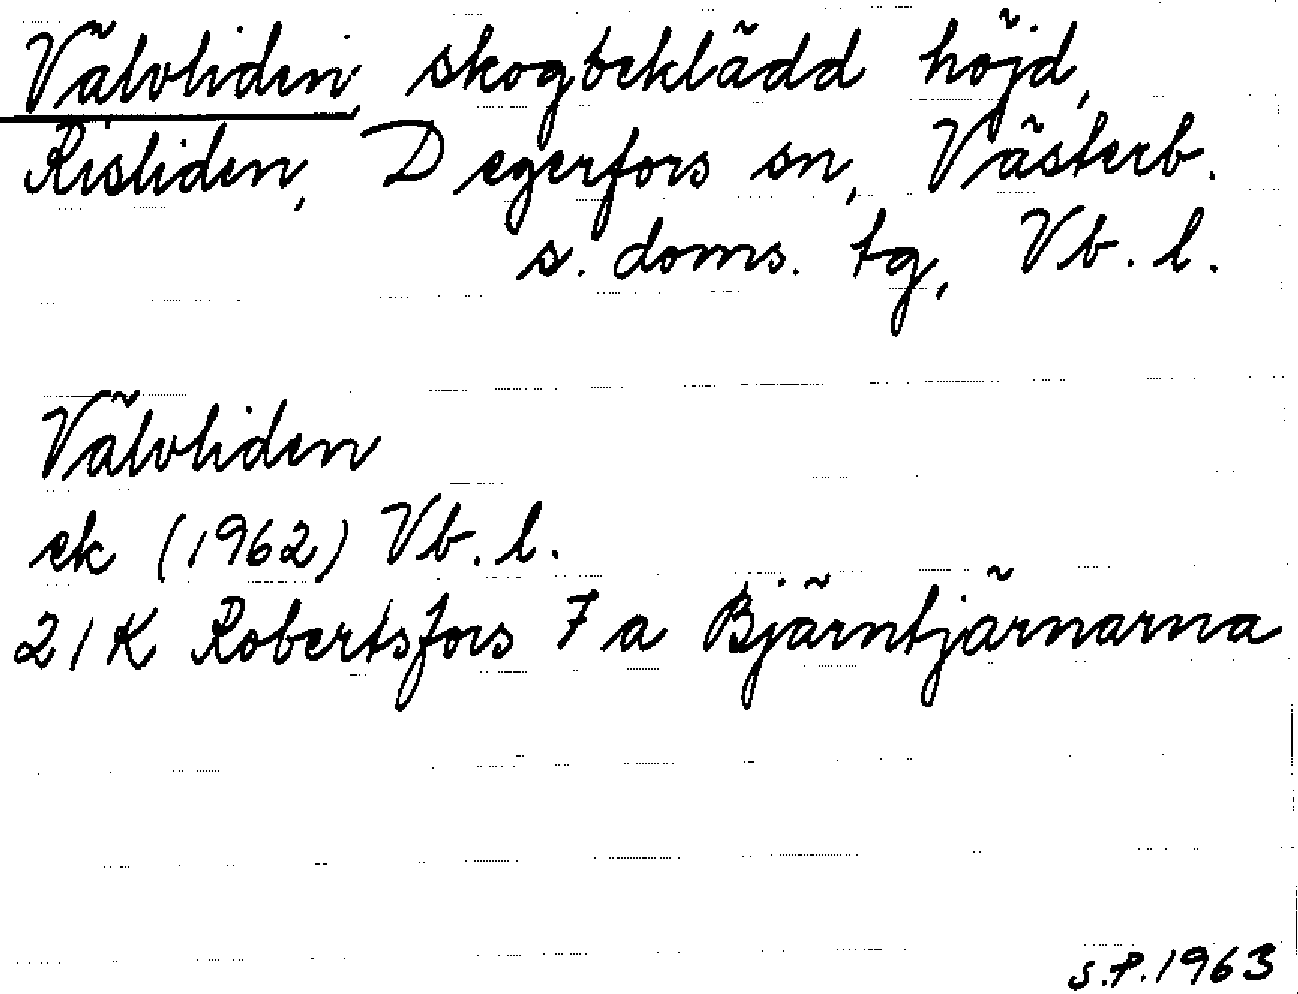 Välvliden, skogbeklädd höjd,
Risliden, Degerfors sn, Västerb.
s. doms. tg, Vb. l.
Välvliden
ek (1962) Vb. l.
21K Robertsfors 7a Bjärntjärnarna
S.P. 1963